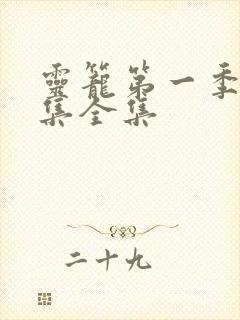 靈籠第一季
集全集
二十九